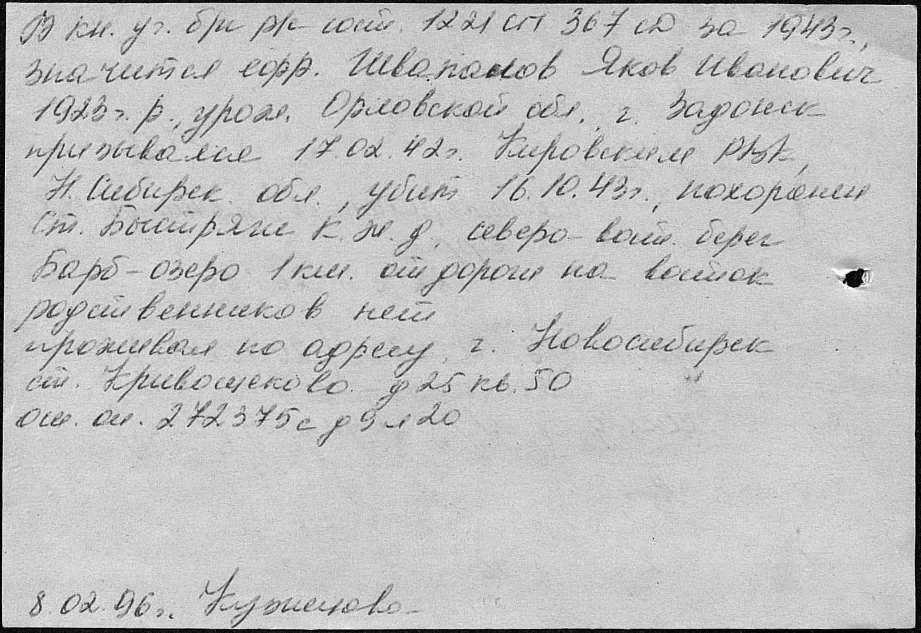 В кн. уч. б/п р/с сост. 1221 сп 367 сд за 1943г.,
значится ефр. Шванов Яков Иванович
1923г.р., урож. Орловской обл., г. Задонск
призывался 17.02.42г. Кировским РВК,
Н.Сибирск. обл., убит 16.10.43г., похоронен
ст. К.ж.д., северо-вост. берег
Барб-озеро 1 км. от дороги на восток
родственников нет
проживал по адресу, г. Новосибирск
ст. Кривощеково д 25 кв. 50
осн. оп. 272375с д 9 л 20
8.02.96г.